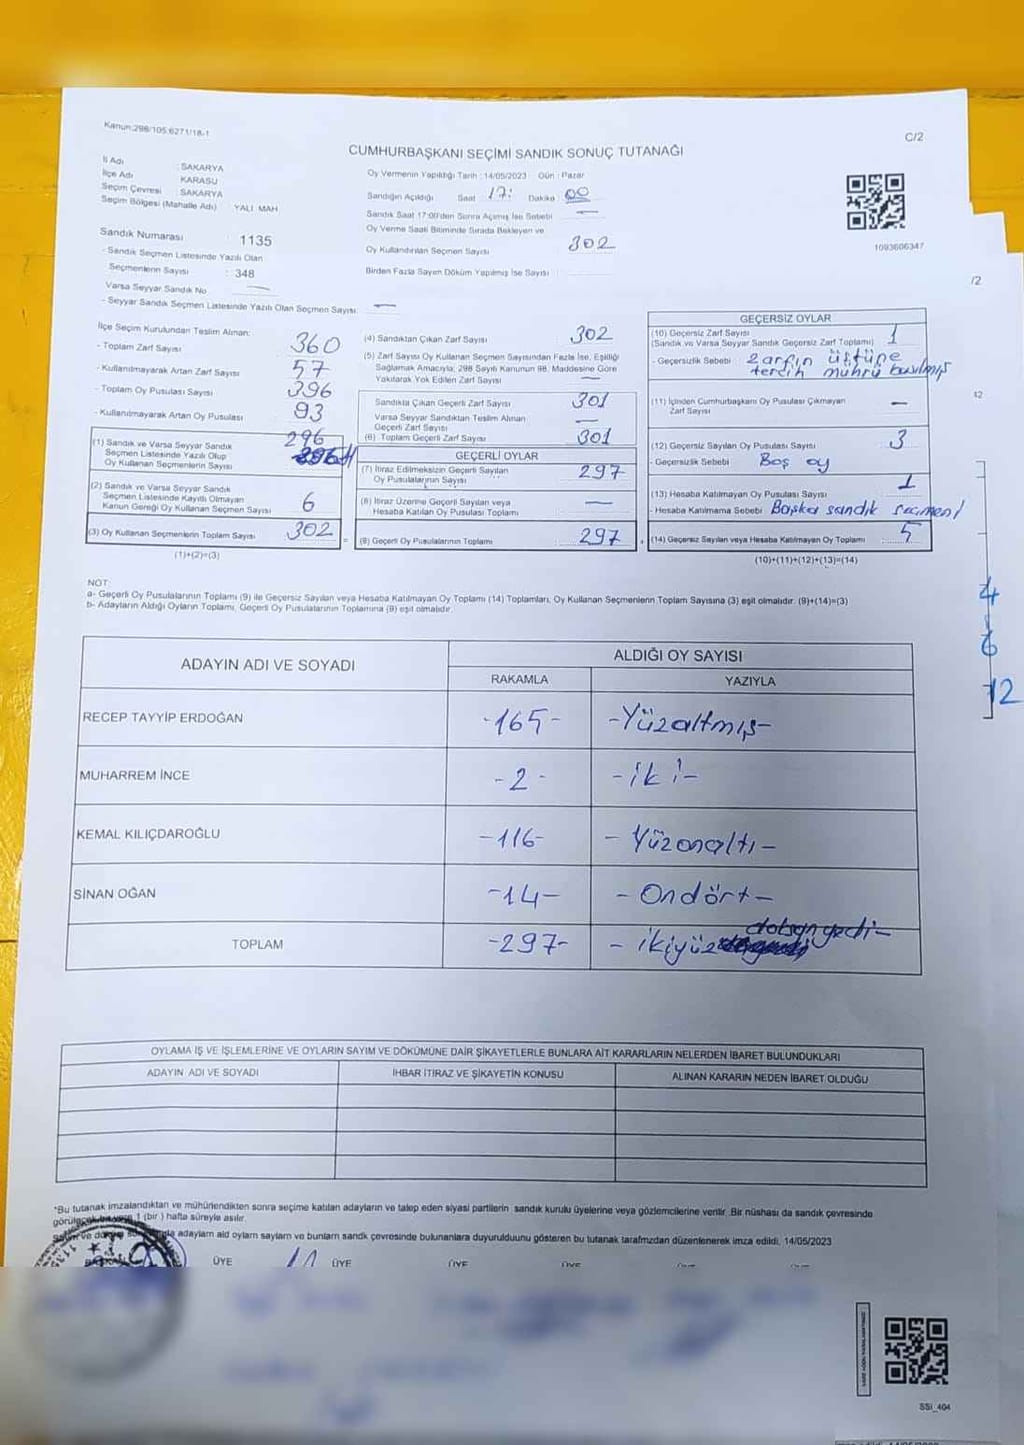 Kanun:298/105;6271/18-1
C/2
CUMHURBAŞKANI SEÇİMİ SANDIK SONUÇ TUTANAĞI
İl Adı : SAKARYA
İlçe Adı KARASU
Seçim Çevresi : SAKARYA
Seçim Bölgesi (Mahalle Adı) YALI MAH
Sandık Numarası 1135
- Sandık Seçmen Listesinde Yazılı Olan
Seçmenlerin Sayısı : 348
Varsa Seyyar Sandık No —
- Seyyar Sandık Seçmen Listesinde Yazılı Olan Seçmen Sayısı: —
Oy Vermenin Yapıldığı Tarih : 14/05/2023 Gün : Pazar
Sandığın Açıldığı Saat 17: Dakika 00
Sandık Saat 17:00'den Sonra Açımış İse Sebebi —
Oy Verme Saati Bitiminde Sırada Bekleyen ve
Oy Kullandırılan Seçmen Sayısı 302
Birden Fazla Sayım Döküm Yapılmış İse Sayısı
1093606347
/2
12
İlçe Seçim Kurulundan Teslim Alınan:
- Toplam Zarf Sayısı 360
- Kullanılmayarak Artan Zarf Sayısı 57
- Toplam Oy Pusulası Sayısı 396
- Kullanılmayarak Artan Oy Pusulası 93
(1) Sandık ve Varsa Seyyar Sandık 296
Seçmen Listesinde Yazılı Olup
Oy Kullanan Seçmenlerin Sayısı
(2) Sandık ve Varsa Seyyar Sandık
Seçmen Listesinde Kayıtlı Olmayan
Kanun Gereği Oy Kullanan Seçmen Sayısı 6
(3) Oy Kullanan Seçmenlerin Toplam Sayısı 302
(1)+(2)=(3)
(4) Sandıktan Çıkan Zarf Sayısı 302
(5) Zarf Sayısı Oy Kullanan Seçmen Sayısından Fazla İse, Eşitliği
Sağlamak Amacıyla; 298 Sayılı Kanunun 98. Maddesine Göre
Yakılarak Yok Edilen Zarf Sayısı —
Sandıkta Çıkan Geçerli Zarf Sayısı 301
Varsa Seyyar Sandıktan Teslim Alınan
Geçerli Zarf Sayısı —
(6) Toplam Geçerli Zarf Sayısı 301
GEÇERLİ OYLAR
(7) İtiraz Edilmeksizin Geçerli Sayılan
Oy Pusulalarının Sayısı 297
(8) İtiraz Üzerine Geçerli Sayılan veya
Hesaba Katılan Oy Pusulası Toplamı —
(9) Geçerli Oy Pusulalarının Toplamı 297
GEÇERSİZ OYLAR
(10) Geçersiz Zarf Sayısı
(Sandık ve Varsa Seyyar Sandık Geçersiz Zarf Toplamı) 1
- Geçersizlik Sebebi Zarfın üstüne
tercih mührü basılmış
(11) İçinden Cumhurbaşkanı Oy Pusulası Çıkmayan
Zarf Sayısı —
(12) Geçersiz Sayılan Oy Pusulası Sayısı 3
- Geçersizlik Sebebi Boş oy
(13) Hesaba Katılmayan Oy Pusulası Sayısı 1
- Hesaba Katılmama Sebebi Başka sandık seçmeni
(14) Geçersiz Sayılan veya Hesaba Katılmayan Oy Toplamı 5
(10)+(11)+(12)+(13)=(14)
NOT:
a- Geçerli Oy Pusulalarının Toplamı (9) ile Geçersiz Sayılan veya Hesaba Katılmayan Oy Toplamı (14) Toplamları, Oy Kullanan Seçmenlerin Toplam Sayısına (3) eşit olmalıdır. (9)+(14)=(3)
b- Adayların Aldığı Oyların Toplamı, Geçerli Oy Pusulalarının Toplamına (9) eşit olmalıdır.
4
6
12
ADAYIN ADI VE SOYADI ALDIĞI OY SAYISI
RAKAMLA YAZIYLA
RECEP TAYYİP ERDOĞAN -165- -Yüzaltmış-
MUHARREM İNCE -2- -iki-
KEMAL KILIÇDAROĞLU -116- -Yüzonaltı-
SİNAN OĞAN -14- -Ondört-
TOPLAM -297- -ikiyüz doksanyedi-
OYLAMA İŞ VE İŞLEMLERİNE VE OYLARIN SAYIM VE DÖKÜMÜNE DAİR ŞİKAYETLERLE BUNLARA AİT KARARLARIN NELERDEN İBARET BULUNDUKLARI
ADAYIN ADI VE SOYADI İHBAR İTİRAZ VE ŞİKAYETİN KONUSU ALINAN KARARIN NEDEN İBARET OLDUĞU
*Bu tutanak imzalandıktan ve mühürlendikten sonra seçime katılan adayların ve talep eden siyasi partilerin sandık kurulu üyelerine veya gözlemcilerine verilir. Bir nüshası da sandık çevresinde
1 (bir ) hafta süreyle asılır.
adayların ald oylarn sayların ve bunların sandk çevresinde bulunanlara duyurulduunu gösteren bu tutanak tarafmzdan düzenlenerek imza edildi, 14/05/2023
BAŞKAN ÜYE ÜYE ÜYE ÜYE
SSI_404